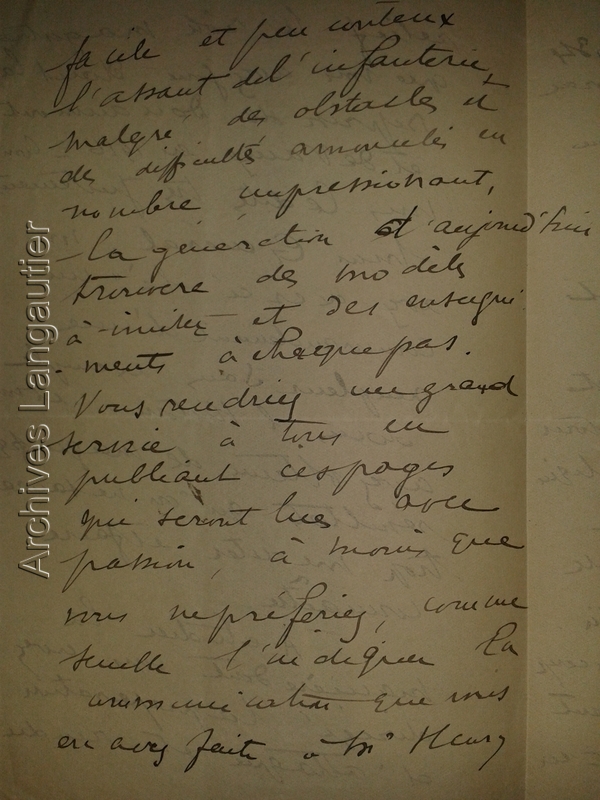 facile et peu couteux
l'assaut del'infanterie,
malgré des obstacles et
des difficultés amoncelés en
nombre impressionnant,
La génération d'aujourd'hui
trouvera des modèles
à imiter et des enseigne
-ments à chaque pas.
Vous rendriez un grand
service à tous en
publiant ces pages
qui seront lues avec
passion, à moins que
vous ne préfériez, comme
semble l'indiquer la
communication que vous
en avez faite à Mr Henry
Archives Langautier